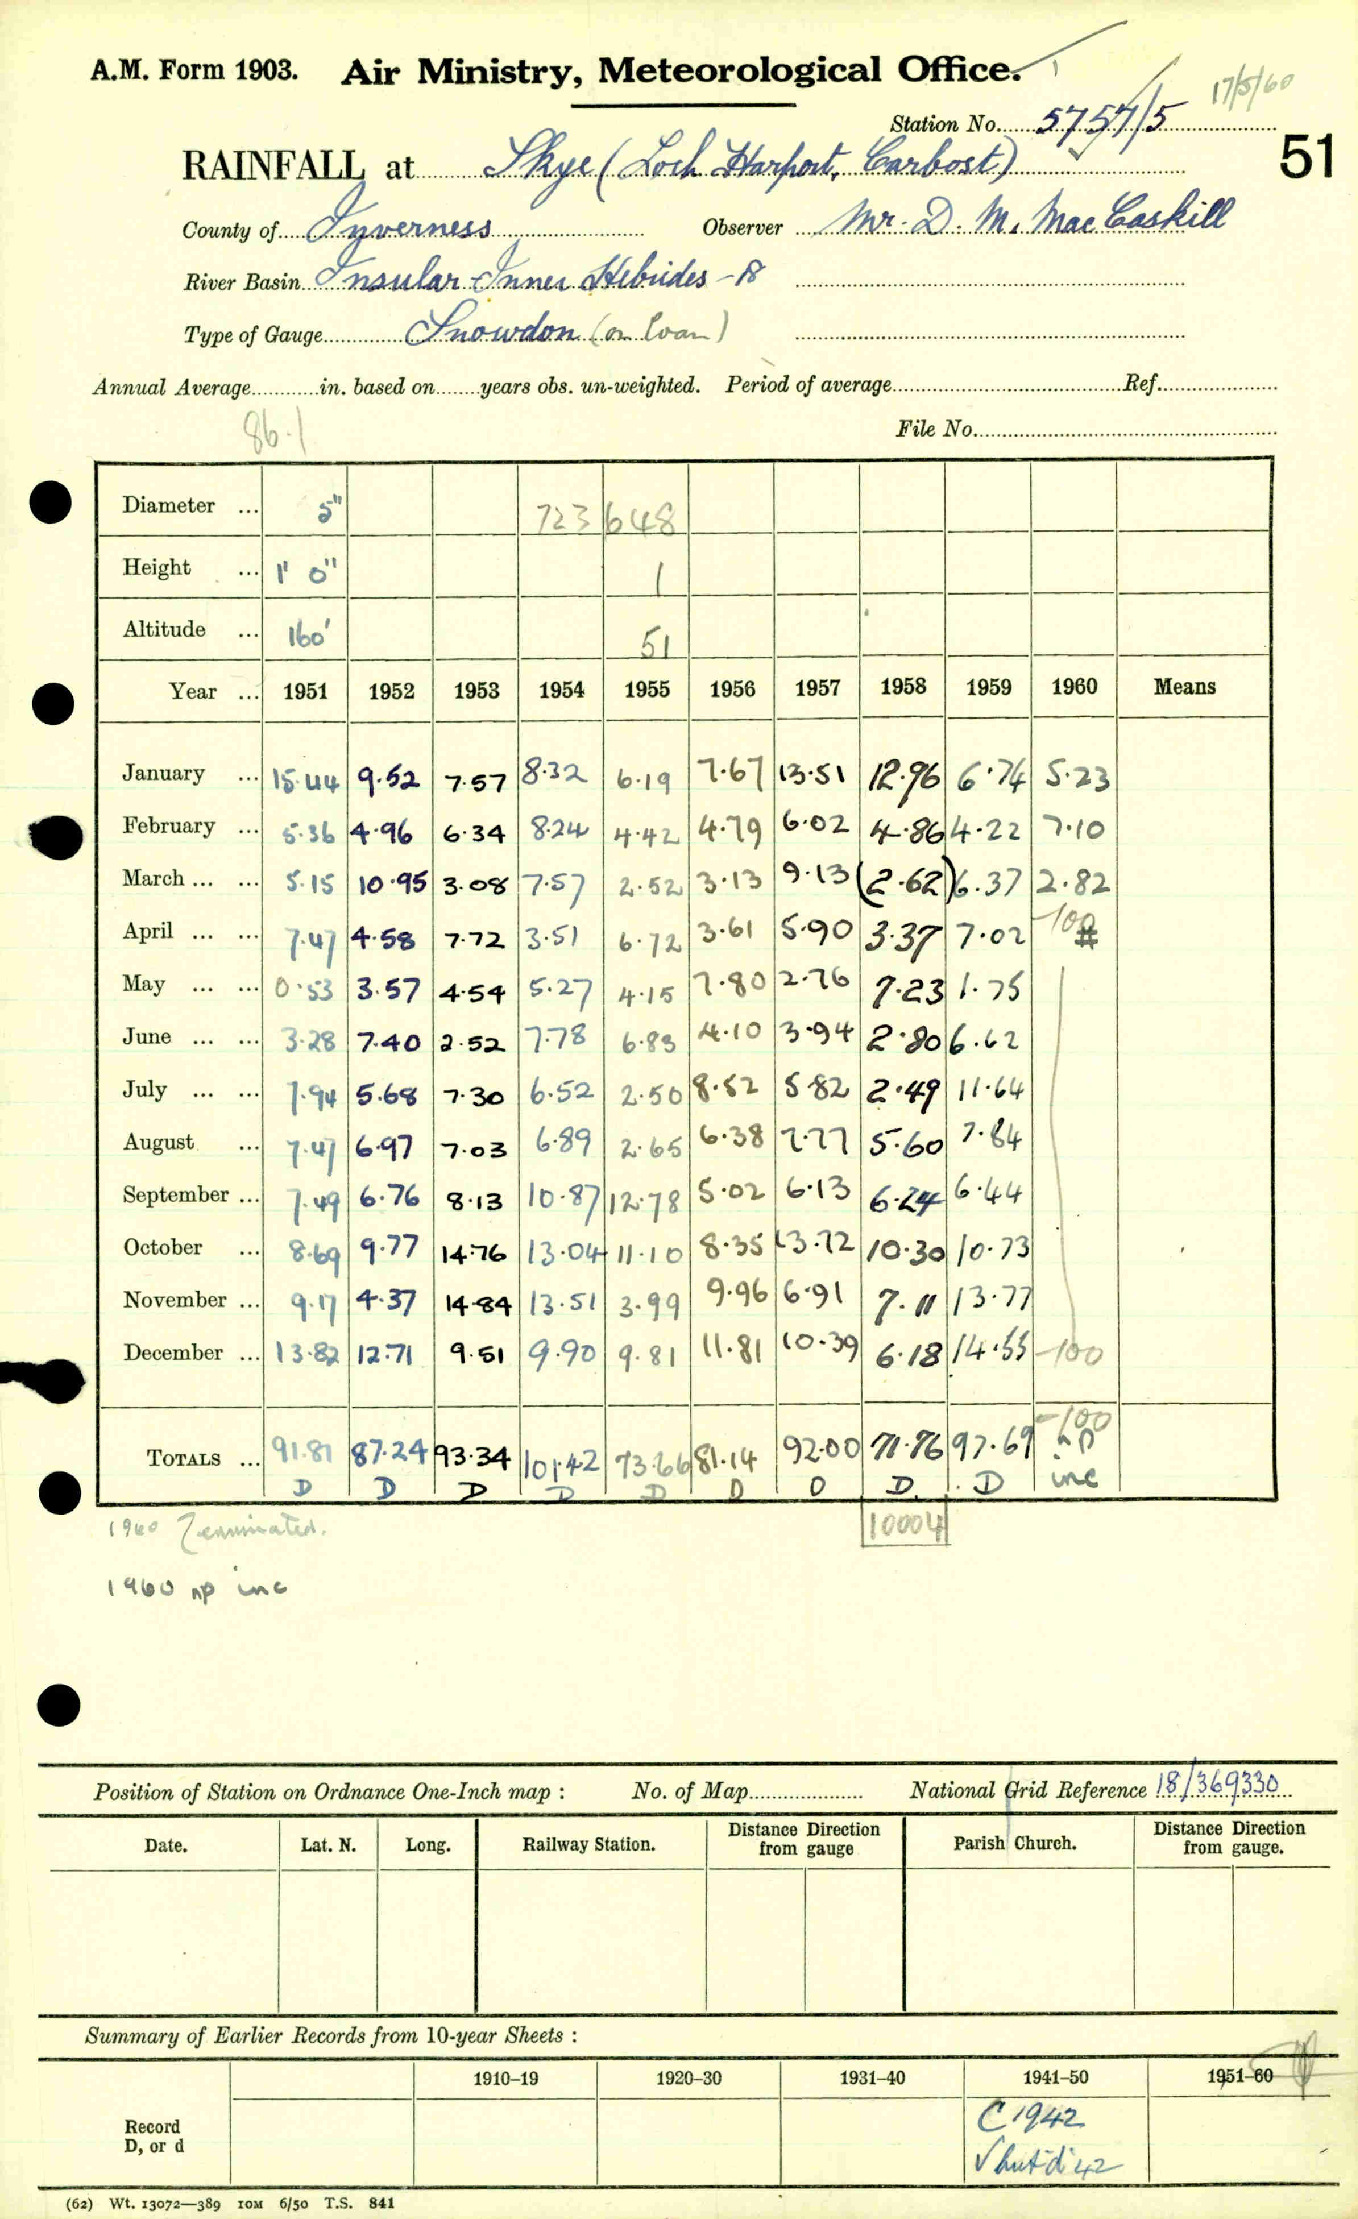 A.M. Form 1903. Air Ministry, Meteorological Office.
17/5/60
Station No. 5757/5
RAINFALL at Skye (Loch Harport, Carbost)
51
County of Inverness Observer Mr. D. M. MacCaskill
River Basin Insular-Inner Hebrides - B
Type of Gauge Snowdon (on loan)
Annual Average in. based on years obs. un-weighted. Period of average Ref.
86.1
File No.
Diameter ... 5" 723 648
Height ... 1' 0" 1
Altitude ... 160' 51
Year ... 1951 1952 1953 1954 1955 1956 1957 1958 1959 1960 Means
January ... 15.44 9.52 7.57 8.32 6.19 7.67 13.51 12.96 6.74 5.23
February ... 5.36 4.96 6.34 8.24 4.42 4.79 6.02 4.86 4.22 7.10
March ... ... 5.15 10.95 3.08 7.57 2.52 3.13 9.13 (2.62) 6.37 2.82
April ... ... 7.47 4.58 7.72 3.51 6.72 3.61 5.90 3.37 7.02 -100 #
May ... ... 0.53 3.57 4.54 5.27 4.15 7.80 2.76 7.23 1.75
June ... ... 3.28 7.40 2.52 7.78 6.83 4.10 3.94 2.80 6.62
July ... ... 7.94 5.68 7.30 6.52 2.50 8.52 5.82 2.49 11.64
August ... 7.47 6.97 7.03 6.89 2.65 6.38 7.77 5.60 7.84
September ... 7.49 6.76 8.13 10.87 12.78 5.02 6.13 6.24 6.44
October ... 8.69 9.77 14.76 13.04 11.10 8.35 13.72 10.30 10.73
November ... 9.17 4.37 14.84 13.51 3.99 9.96 6.91 7.11 13.77
December ... 13.82 12.71 9.51 9.90 9.81 11.81 10.39 6.18 14.55 -100
-100
TOTALS ... 91.81 87.24 93.34 101.42 73.66 81.14 92.00 71.76 97.69 np
D D D D D D D D. D inc
1960 Terminated. 10004
1960 np inc
Position of Station on Ordnance One-Inch map : No. of Map National Grid Reference 18/369330
Date. Lat. N. Long. Railway Station. Distance from Direction gauge Parish Church. Distance from Direction gauge.
Summary of Earlier Records from 10-year Sheets :
1910–19 1920–30 1931–40 1941–50 1951–60
Record C 1942
D, or d
(62) Wt. 13072—389 10M 6/50 T.S. 841